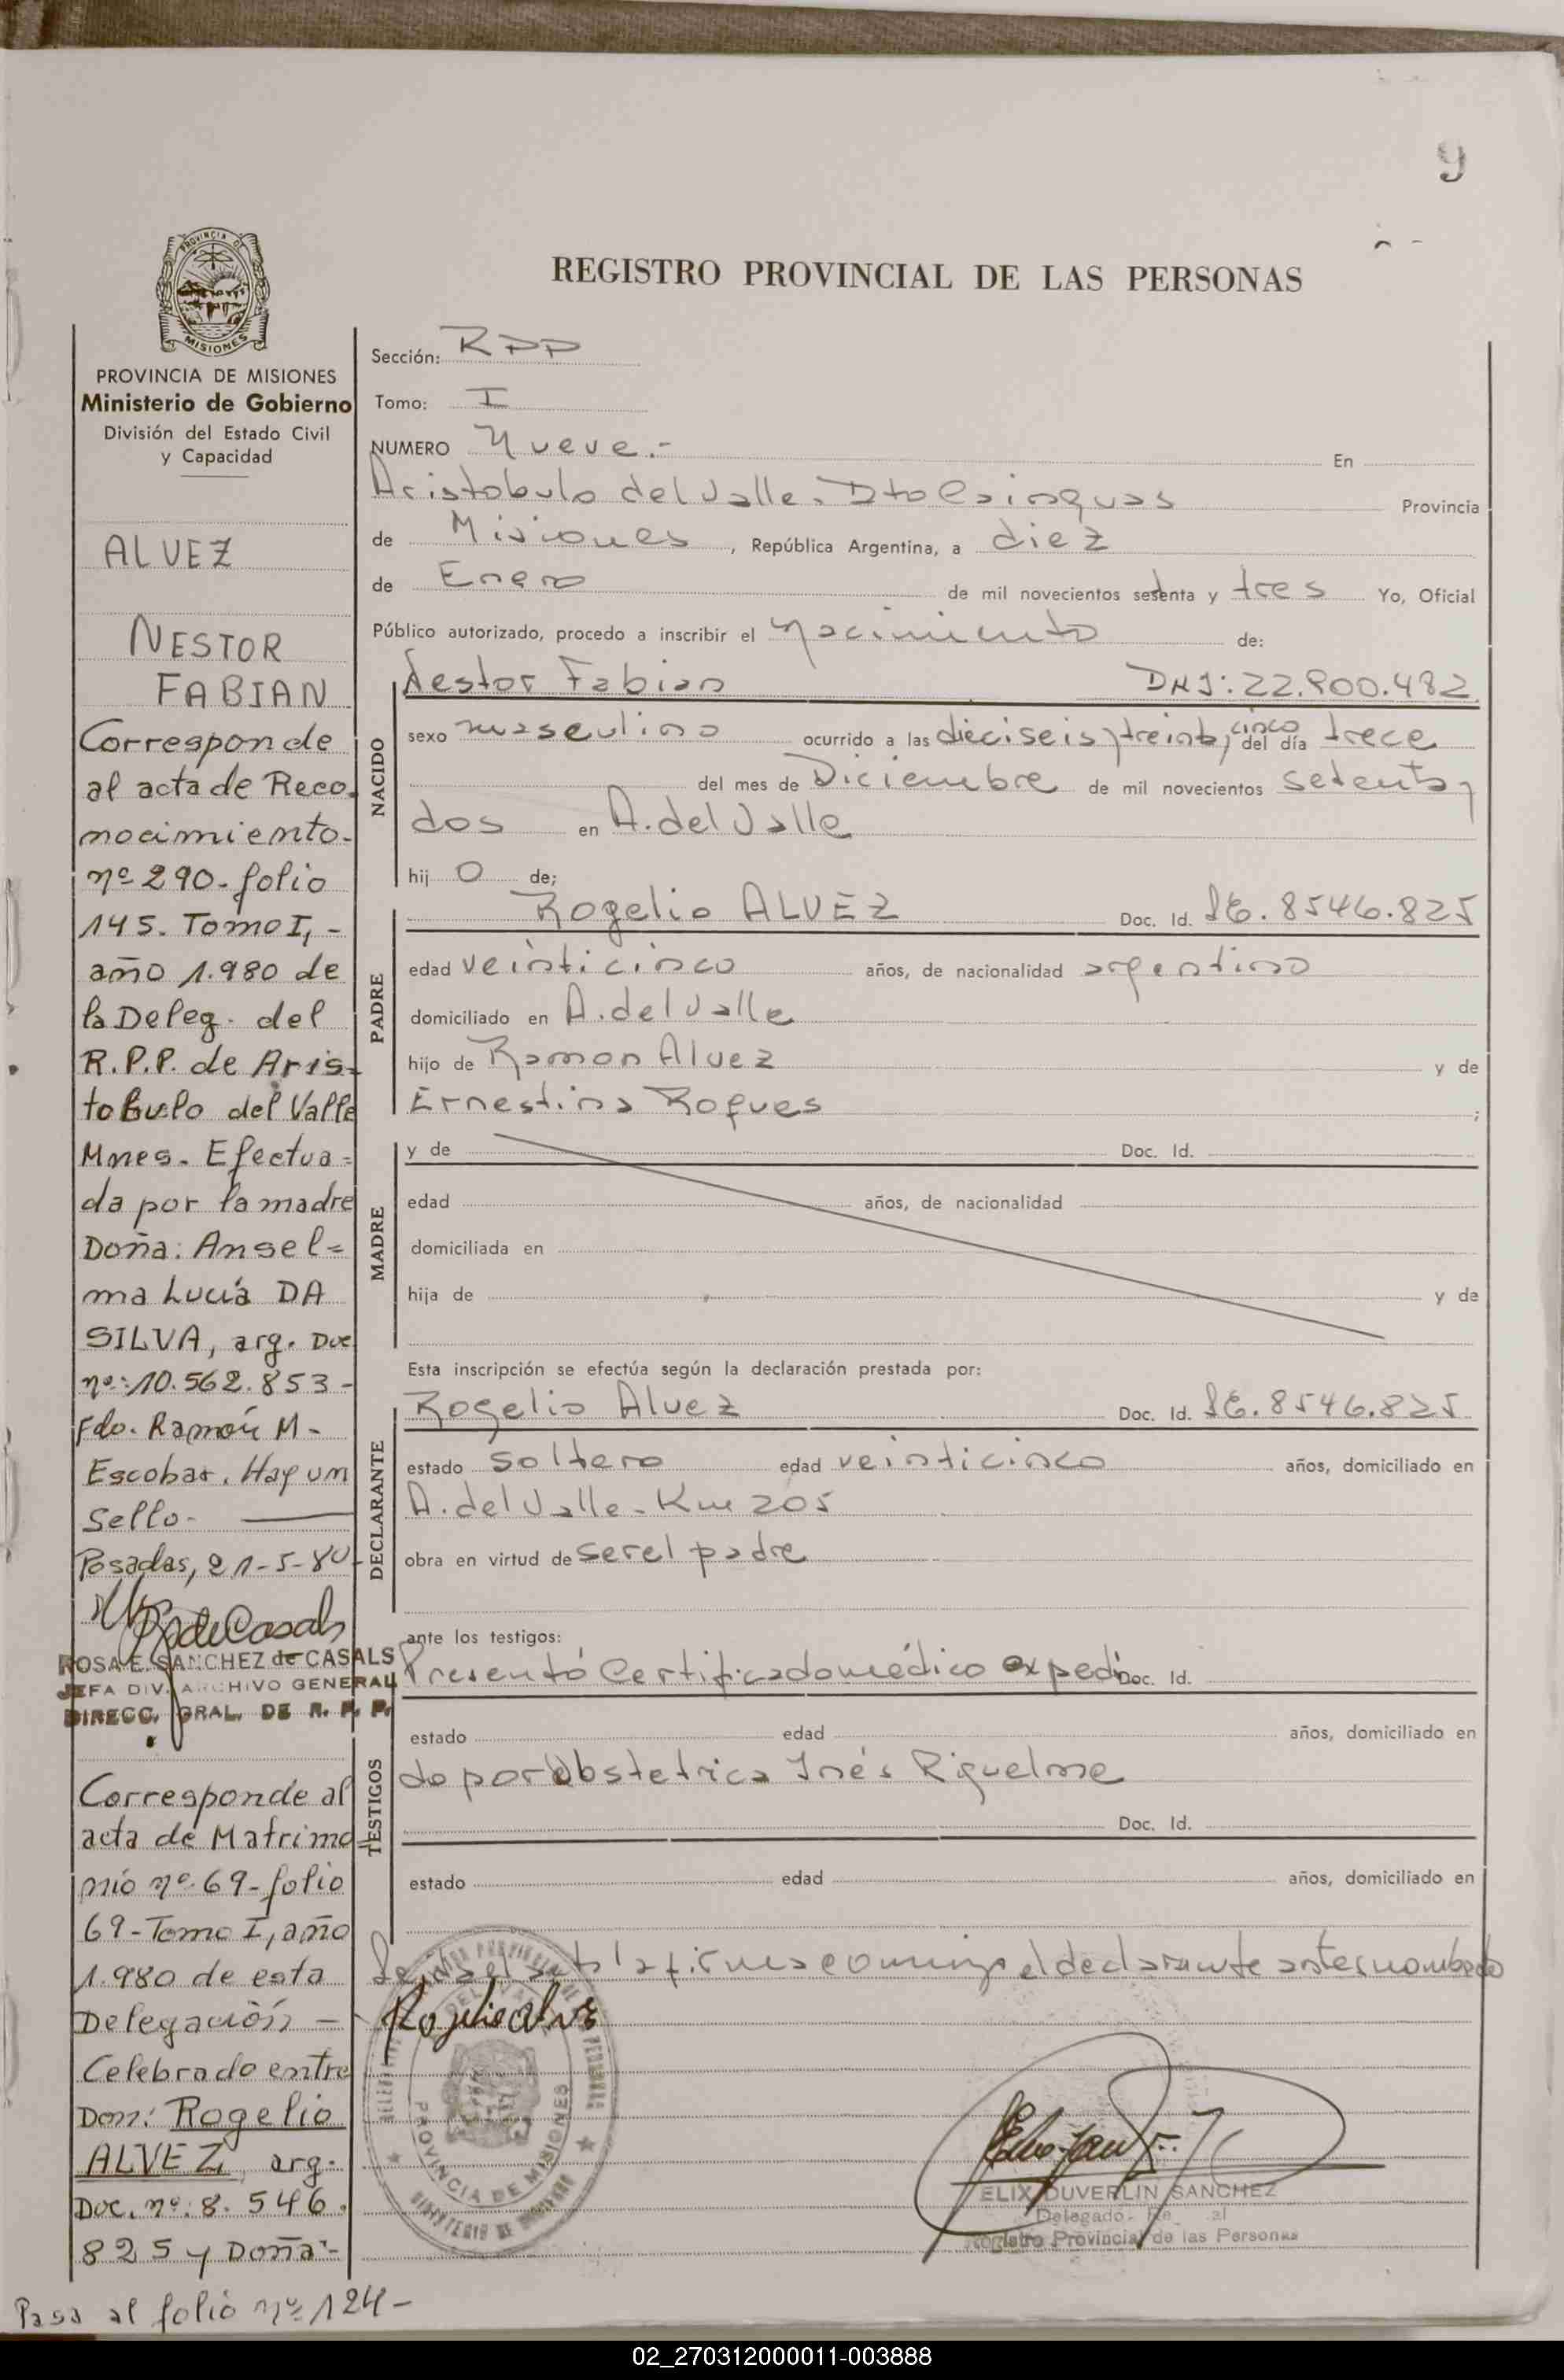 9
PROVINCIA DE
MISIONES
PROVINCIA DE MISIONES
Ministerio de Gobierno
División del Estado Civil
y Capacidad
ALVEZ
NESTOR
FABIAN
Corresponde
al acta de Reco-
nocimiento-
nº 290-folio
145. Tomo I,-
año 1.980 de
la Deleg. del
R.P.P. de Aris-
tobulo del Valle
Mnes. Efectua=
da por la madre
Doña: Ansel=
ma Lucía DA
SILVA, arg. Doc
nº: 10.562.853-
Fdo. Ramón M-
Escobar. Hay un
Sello-
Posadas, 21-5-80
ROSA E. SANCHEZ de CASALS
JEFA DIV. ARCHIVO GENERAL
DIRECC. GRAL. DE R. P. P.
Corresponde al
acta de Matrimo
nio nº 69-folio
69-Tomo I, año
1.980 de esta
Delegación-
Celebrado entre
Don: Rogelio
ALVEZ, arg.
Doc. nº: 8.546.
825 y Doña-
Pasa al folio nº 124-
REGISTRO PROVINCIAL DE LAS PERSONAS
Sección: RPP
Tomo: I
NUMERO Nueve.- En
Aristobulo del Valle. Dto Cainguas Provincia
de Misiones, República Argentina, a diez
de Enero de mil novecientos setenta y tres Yo, Oficial
Público autorizado, procedo a inscribir el Nacimiento de:
NACIDO
Nestor Fabian DNI: 22.900.482
sexo masculino ocurrido a las dieciseis y treinta y cinco del día trece
del mes de Diciembre de mil novecientos setenta y
dos en A. del Valle
hij o de;
PADRE
Rogelio ALVEZ Doc. Id. LE. 8546.825
edad veinticinco años, de nacionalidad argentino
domiciliado en A. del Valle
hijo de Ramon Alvez y de
Ernestina Rogues ;
MADRE
y de Doc. Id.
edad años, de nacionalidad
domiciliada en
hija de y de
Esta inscripción se efectúa según la declaración prestada por:
DECLARANTE
Rogelio Alvez Doc. Id. LE. 8546.825
estado soltero edad veinticinco años, domiciliado en
A. del Valle - Km 205
obra en virtud de ser el padre
ante los testigos:
TESTIGOS
Presentó Certificado médico expedi Doc. Id.
estado edad años, domiciliado en
do por Obstetrica Inés Riquelme
Doc. Id.
estado edad años, domiciliado en
la firma conmigo el declarante antes nombrado
Rogelio Alvez
PROVINCIA DE MISIONES
ELIX DUVERLIN SANCHEZ
Delegado
Registro Provincial de las Personas
02_270312000011-003888